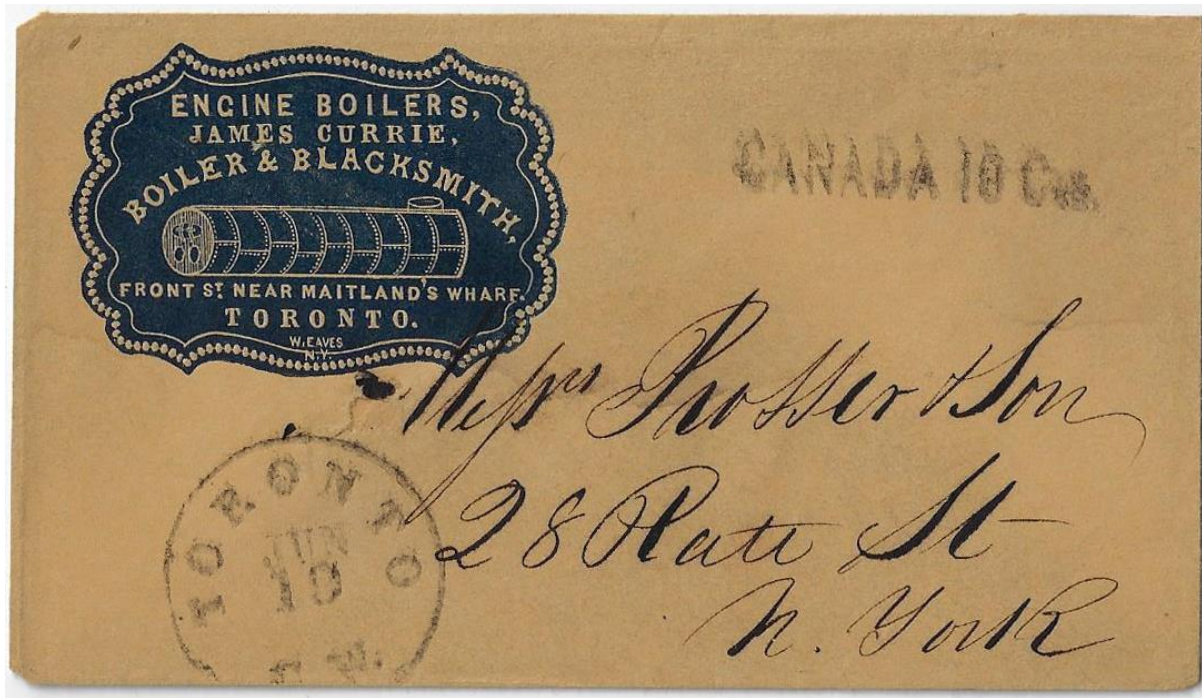 ENGINE BOILERS,
JAMES CURRIE,
BOILER & BLACKSMITH,
FRONT ST. NEAR MAITLAND'S WHARF.
TORONTO.
W. EAVES
N.Y.
CANADA 10 Cts.
Messrs Prosser & Son
28 Platt St
N. York
TORONTO
JUN
10